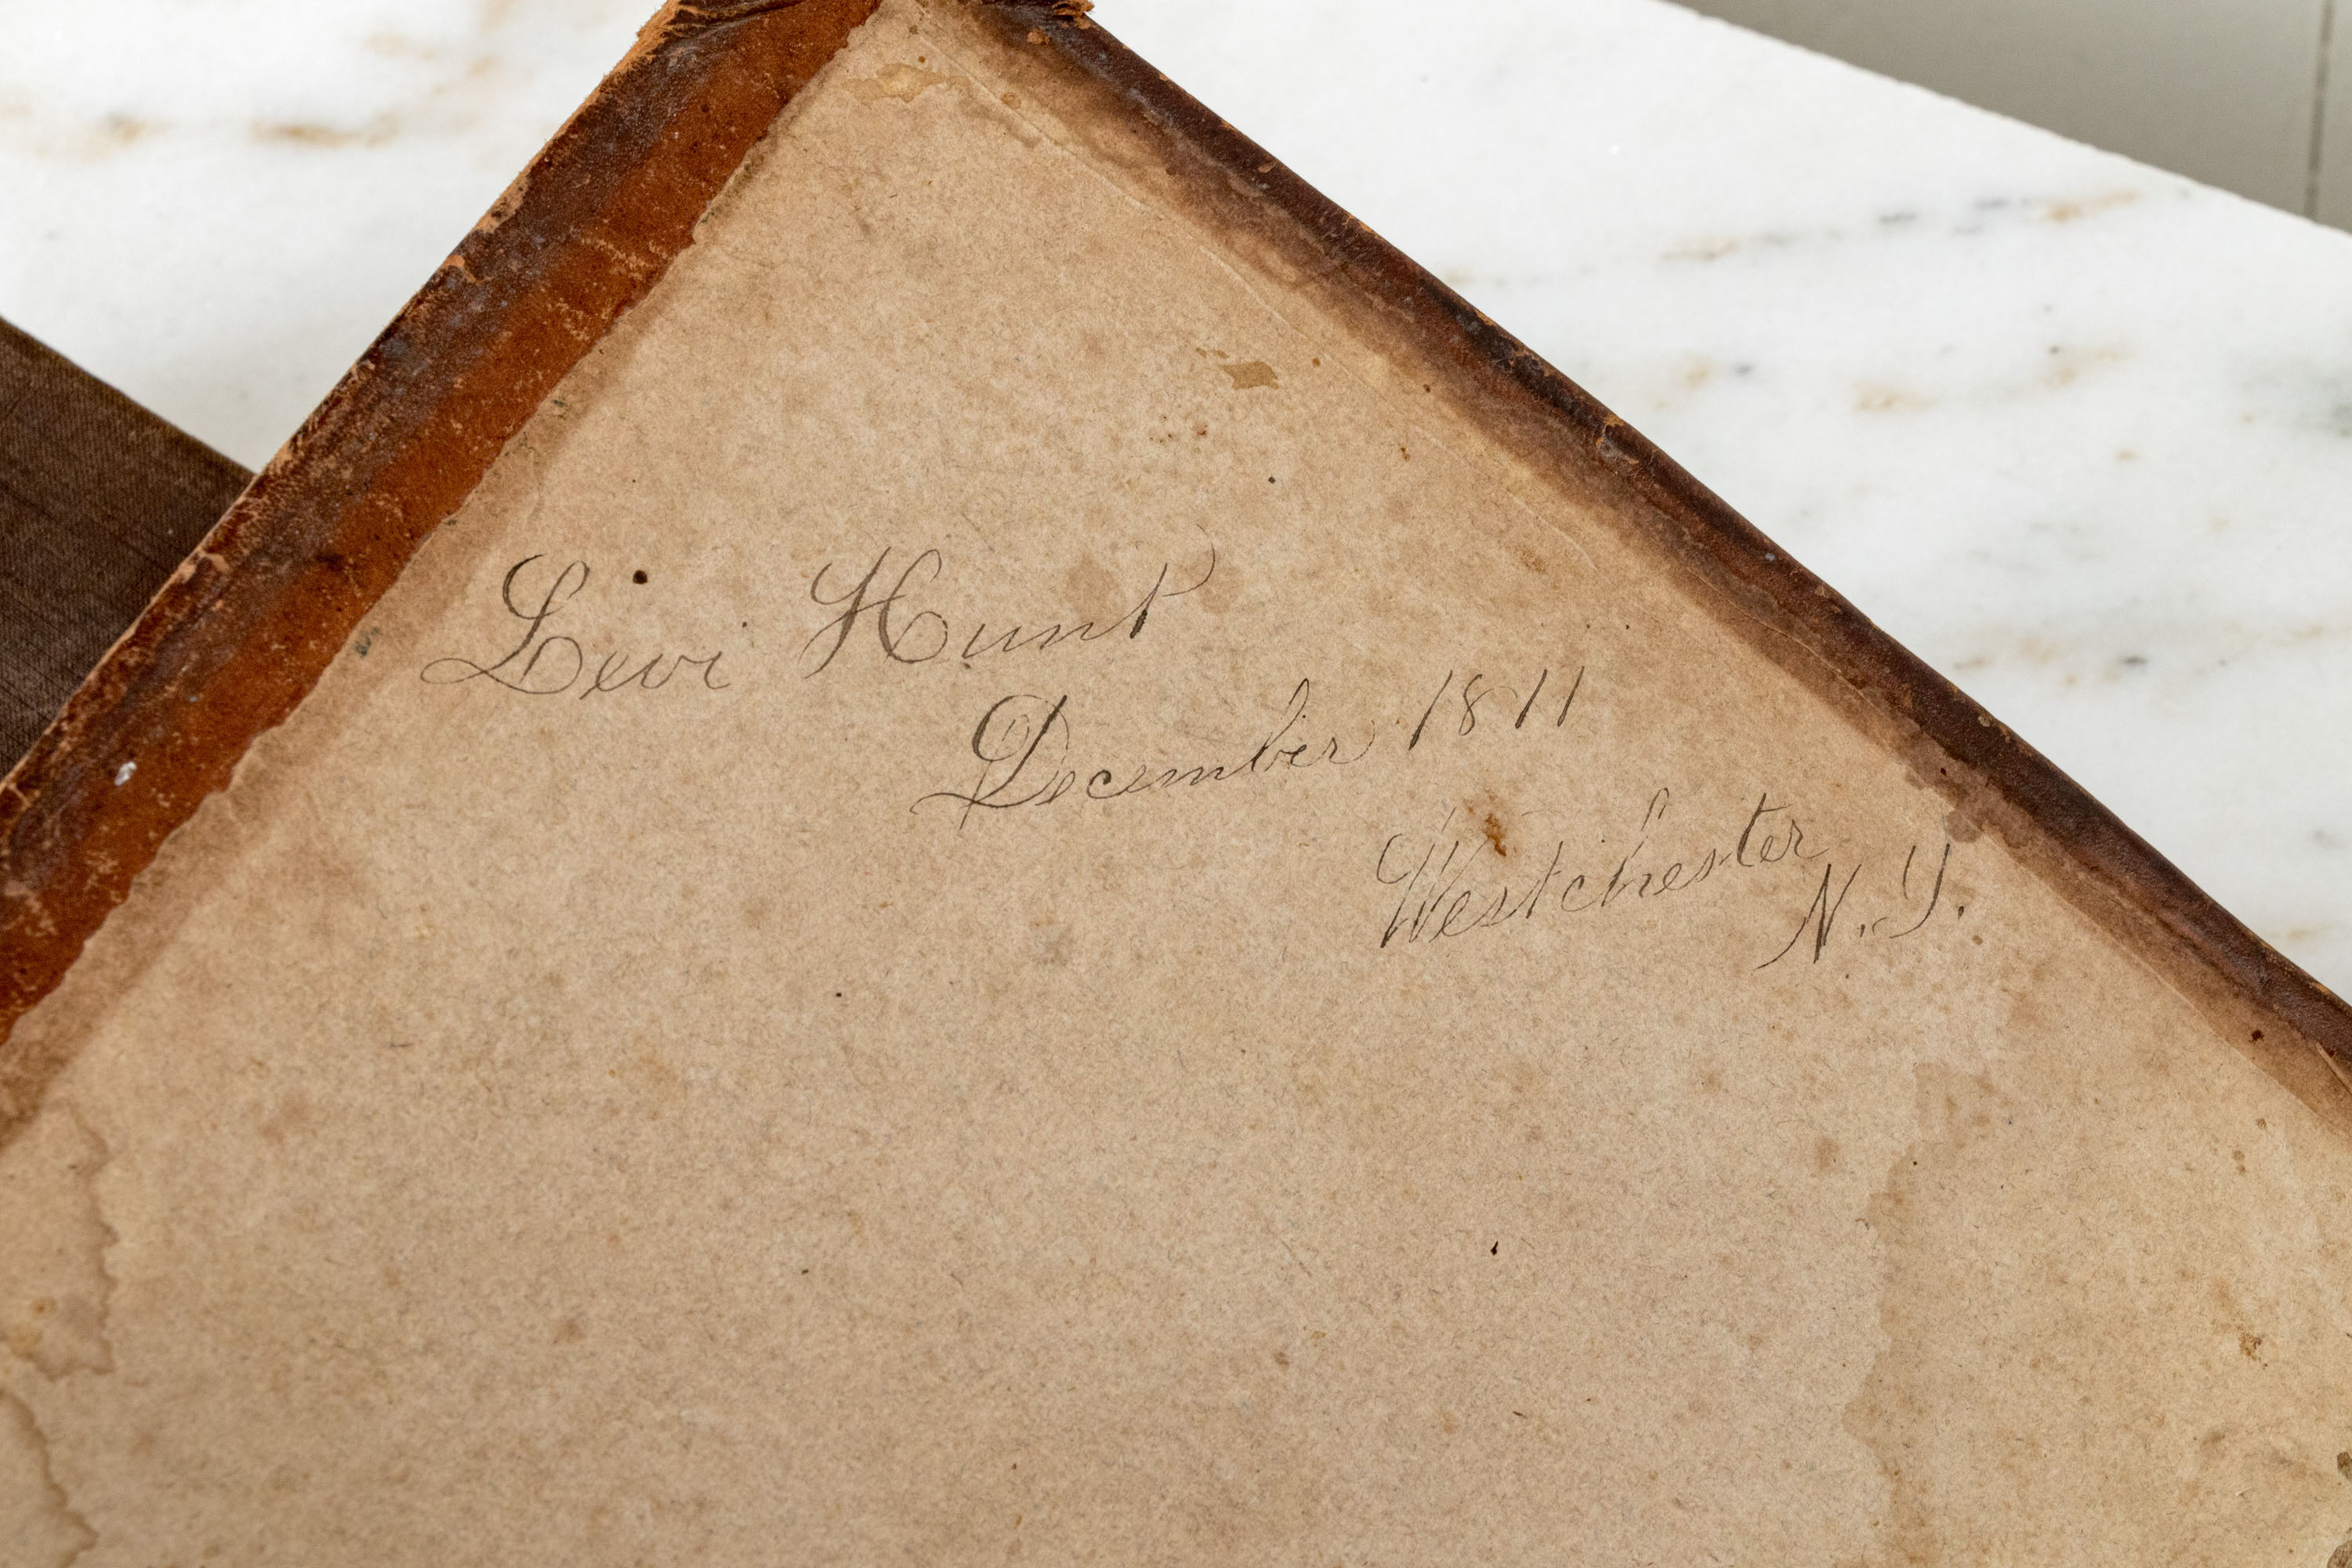 Levi Hunt
December 1811
Westchester
N.Y.